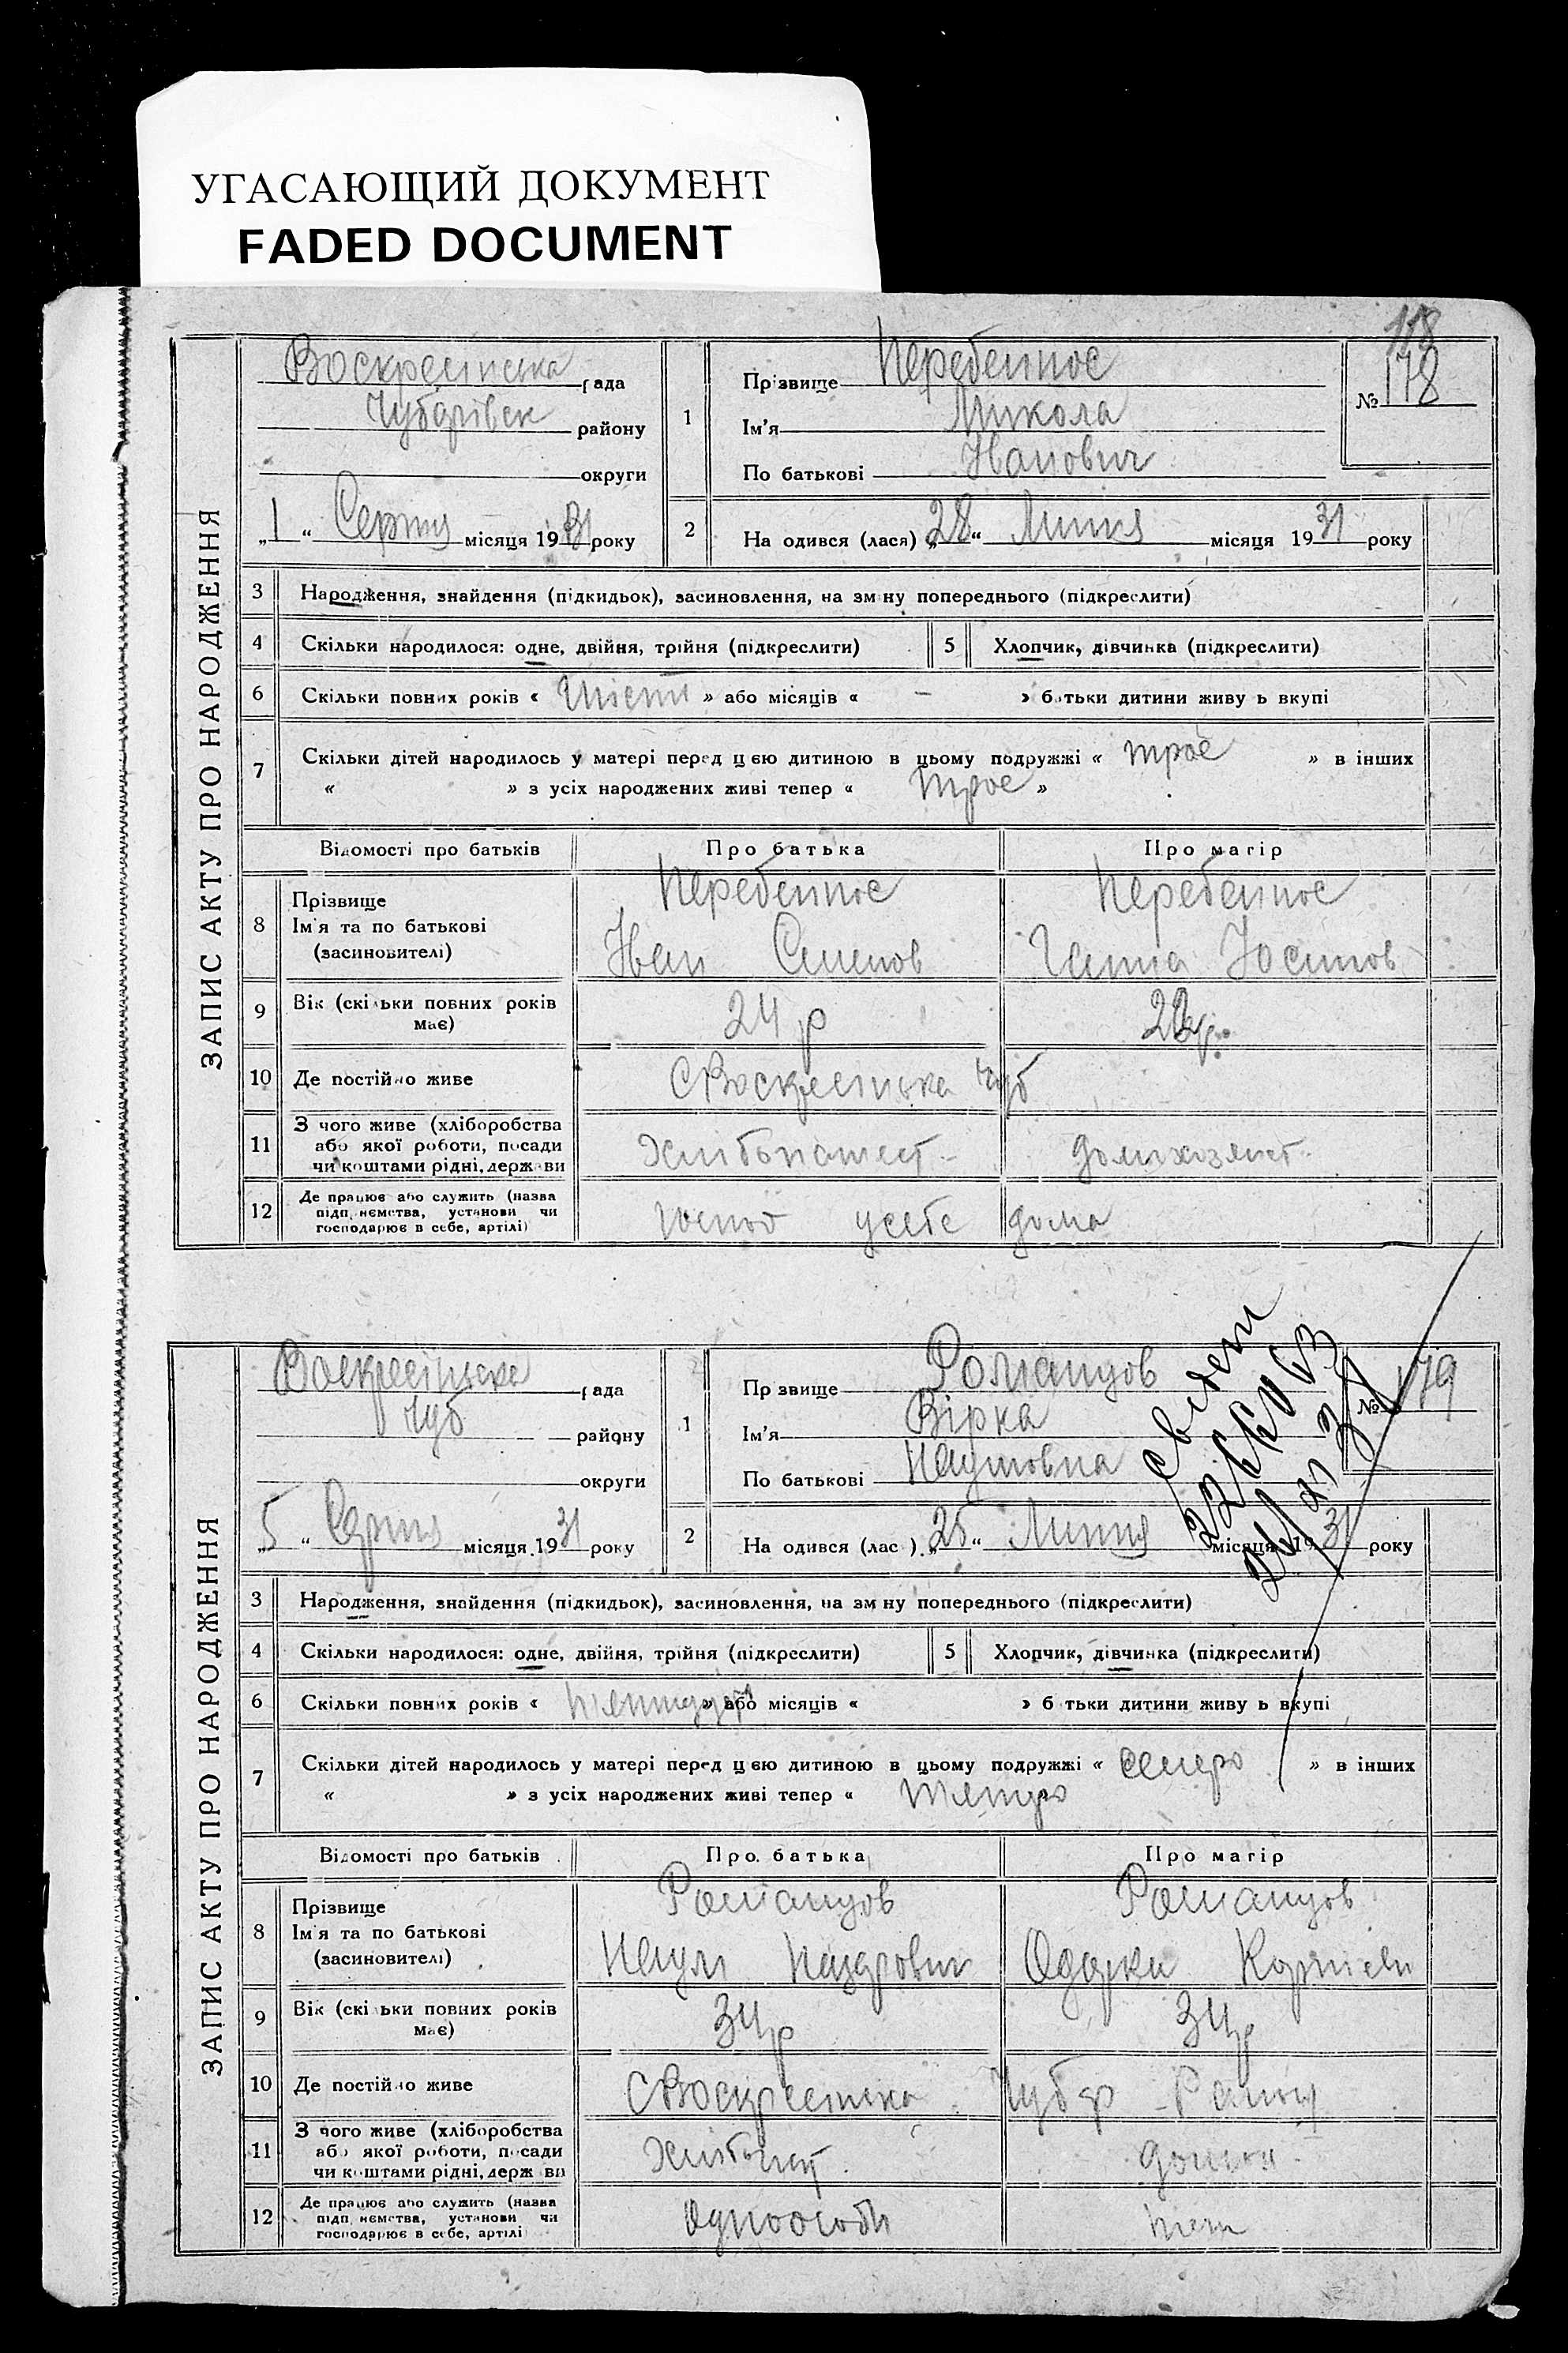 УГАСАЮЩИЙ ДОКУМЕНТ
FADED DOCUMENT
118
ЗАПИС АКТУ ПРО НАРОДЖЕННЯ
Воскресінська рада
Чубарівск району
округи
„1“ Серпня місяця 1931 року
1
Прізвище Перебейнос
Ім'я Микола
По батькові Іванович
№ 178
2
На одився (лася) „28“ Липня місяця 1931 року
3 Народження, знайдення (підкидьок), засиновлення, на зміну попереднього (підкреслити)
4 Скільки народилося: одне, двійня, трійня (підкреслити)
5 Хлопчик, дівчинка (підкреслити)
6 Скільки повних років « Шість » або місяців « – » батьки дитини живуть вкупі
7 Скільки дітей народилось у матері перед цією дитиною в цьому подружжі « троє » в інших
« » з усіх народжених живі тепер « троє »
Відомості про батьків Про батька Про матір
8 Прізвище
Ім'я та по батькові
(засиновителі)
Перебейнос
Иван Семенов
Перебейнос
Ганна Йосипов
9 Вік (скільки повних років має) 24 р
10 Де постійно живе С Воскресінька Чуб
11 З чого живе (хліборобства
або якої роботи, посади
чи коштами рідні, держави
домхозяист
12 Де працює або служить (назва
підприємства, установи чи
господарює в себе, артілі)
господ усебе дома
ЗАПИС АКТУ ПРО НАРОДЖЕННЯ
Воскресінська рада
Чуб району
округи
„5“ Серпня місяця 1931 року
1
Прізвище Романцов
Ім'я Вірка
По батькові Наумовна
№ 179
2
На одився (лас ) „25“ Липня місяця 1931 року
3 Народження, знайдення (підкидьок), засиновлення, на зміну попереднього (підкреслити)
4 Скільки народилося: одне, двійня, трійня (підкреслити)
5 Хлопчик, дівчинка (підкреслити)
6 Скільки повних років « » або місяців « » батьки дитини живуть вкупі
7 Скільки дітей народилось у матері перед цією дитиною в цьому подружжі « семеро » в інших
« » з усіх народжених живі тепер «
Відомості про батьків Про батька Про матір
8 Прізвище
Ім'я та по батькові
(засиновителі)
Романцов
Наум Назарович
Романцов
Одарка Корнієвн
9 Вік (скільки повних років має) 34р 34р
10 Де постійно живе С Воскресінька Чубар Району
11 З чого живе (хліборобства
або якої роботи, посади
чи коштами рідні, держави
12 Де працює або служить (назва
підприємства, установи чи
господарює в себе, артілі
Одноособн